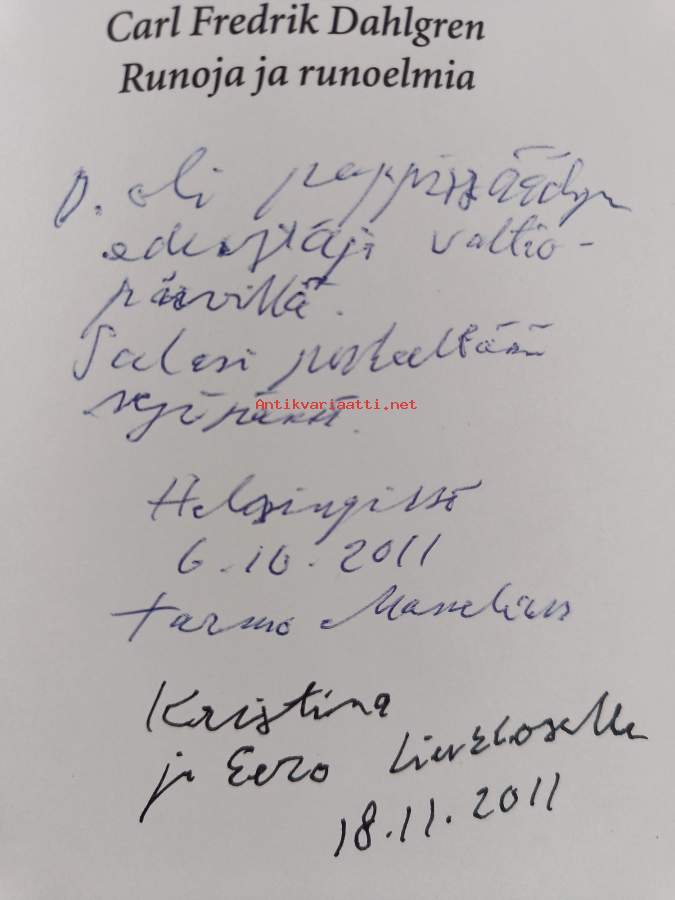 Carl Fredrik Dahlgren
Runoja ja runoelmia
D. oli pappissäädyn
edustaja valtio-
päivillä.
Antikvariaatti.net
Helsingissä
6.10.2011
Tarmo Manelius
Kristina
ja Eero
18.11.2011